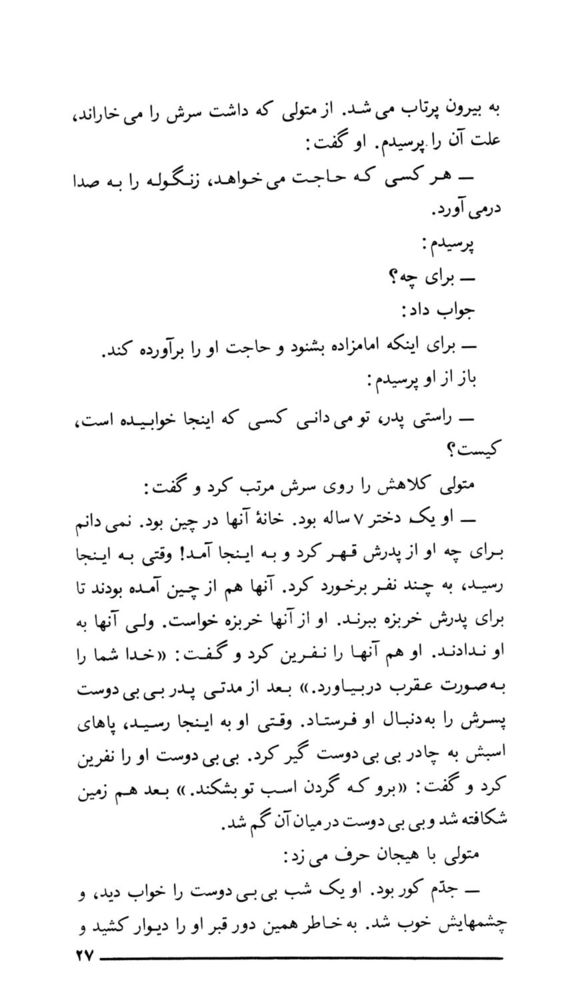 به بیرون پرتاب می‌شد. از متولی که داشت سرش را می‌خاراند،
علت آن را پرسیدم. او گفت:
ـ هر کسی که حاجت می‌خواهد، زنگوله را به صدا
درمی‌آورد.
پرسیدم:
ـ برای چه؟
جواب داد:
ـ برای اینکه امامزاده بشنود و حاجت او را برآورده کند.
باز از او پرسیدم:
ـ راستی پدر، تو می‌دانی کسی که اینجا خوابیده است،
کیست؟
متولی کلاهش را روی سرش مرتب کرد و گفت:
ـ او یک دختر ۷ ساله بود. خانهٔ آنها در چین بود. نمی‌دانم
برای چه او از پدرش قهر کرد و به اینجا آمد! وقتی به اینجا
رسید، به چند نفر برخورد کرد. آنها هم از چین آمده بودند تا
برای پدرش خربزه ببرند. او از آنها خربزه خواست. ولی آنها به
او ندادند. او هم آنها را نفرین کرد و گفت: «خدا شما را
به‌صورت عقرب دربیاورد.» بعد از مدتی پدر بی‌بی دوست
پسرش را به‌دنبال او فرستاد. وقتی او به اینجا رسید، پاهای
اسبش به چادر بی‌بی دوست گیر کرد. بی‌بی دوست او را نفرین
کرد و گفت: «برو که گردن اسب تو بشکند.» بعد هم زمین
شکافته شد و بی‌بی دوست در میان آن گم شد.
متولی با هیجان حرف می‌زد:
ـ جدّم کور بود. او یک شب بی‌بی دوست را خواب دید، و
چشمهایش خوب شد. به‌خاطر همین دور قبر او را دیوار کشید و
۲۷